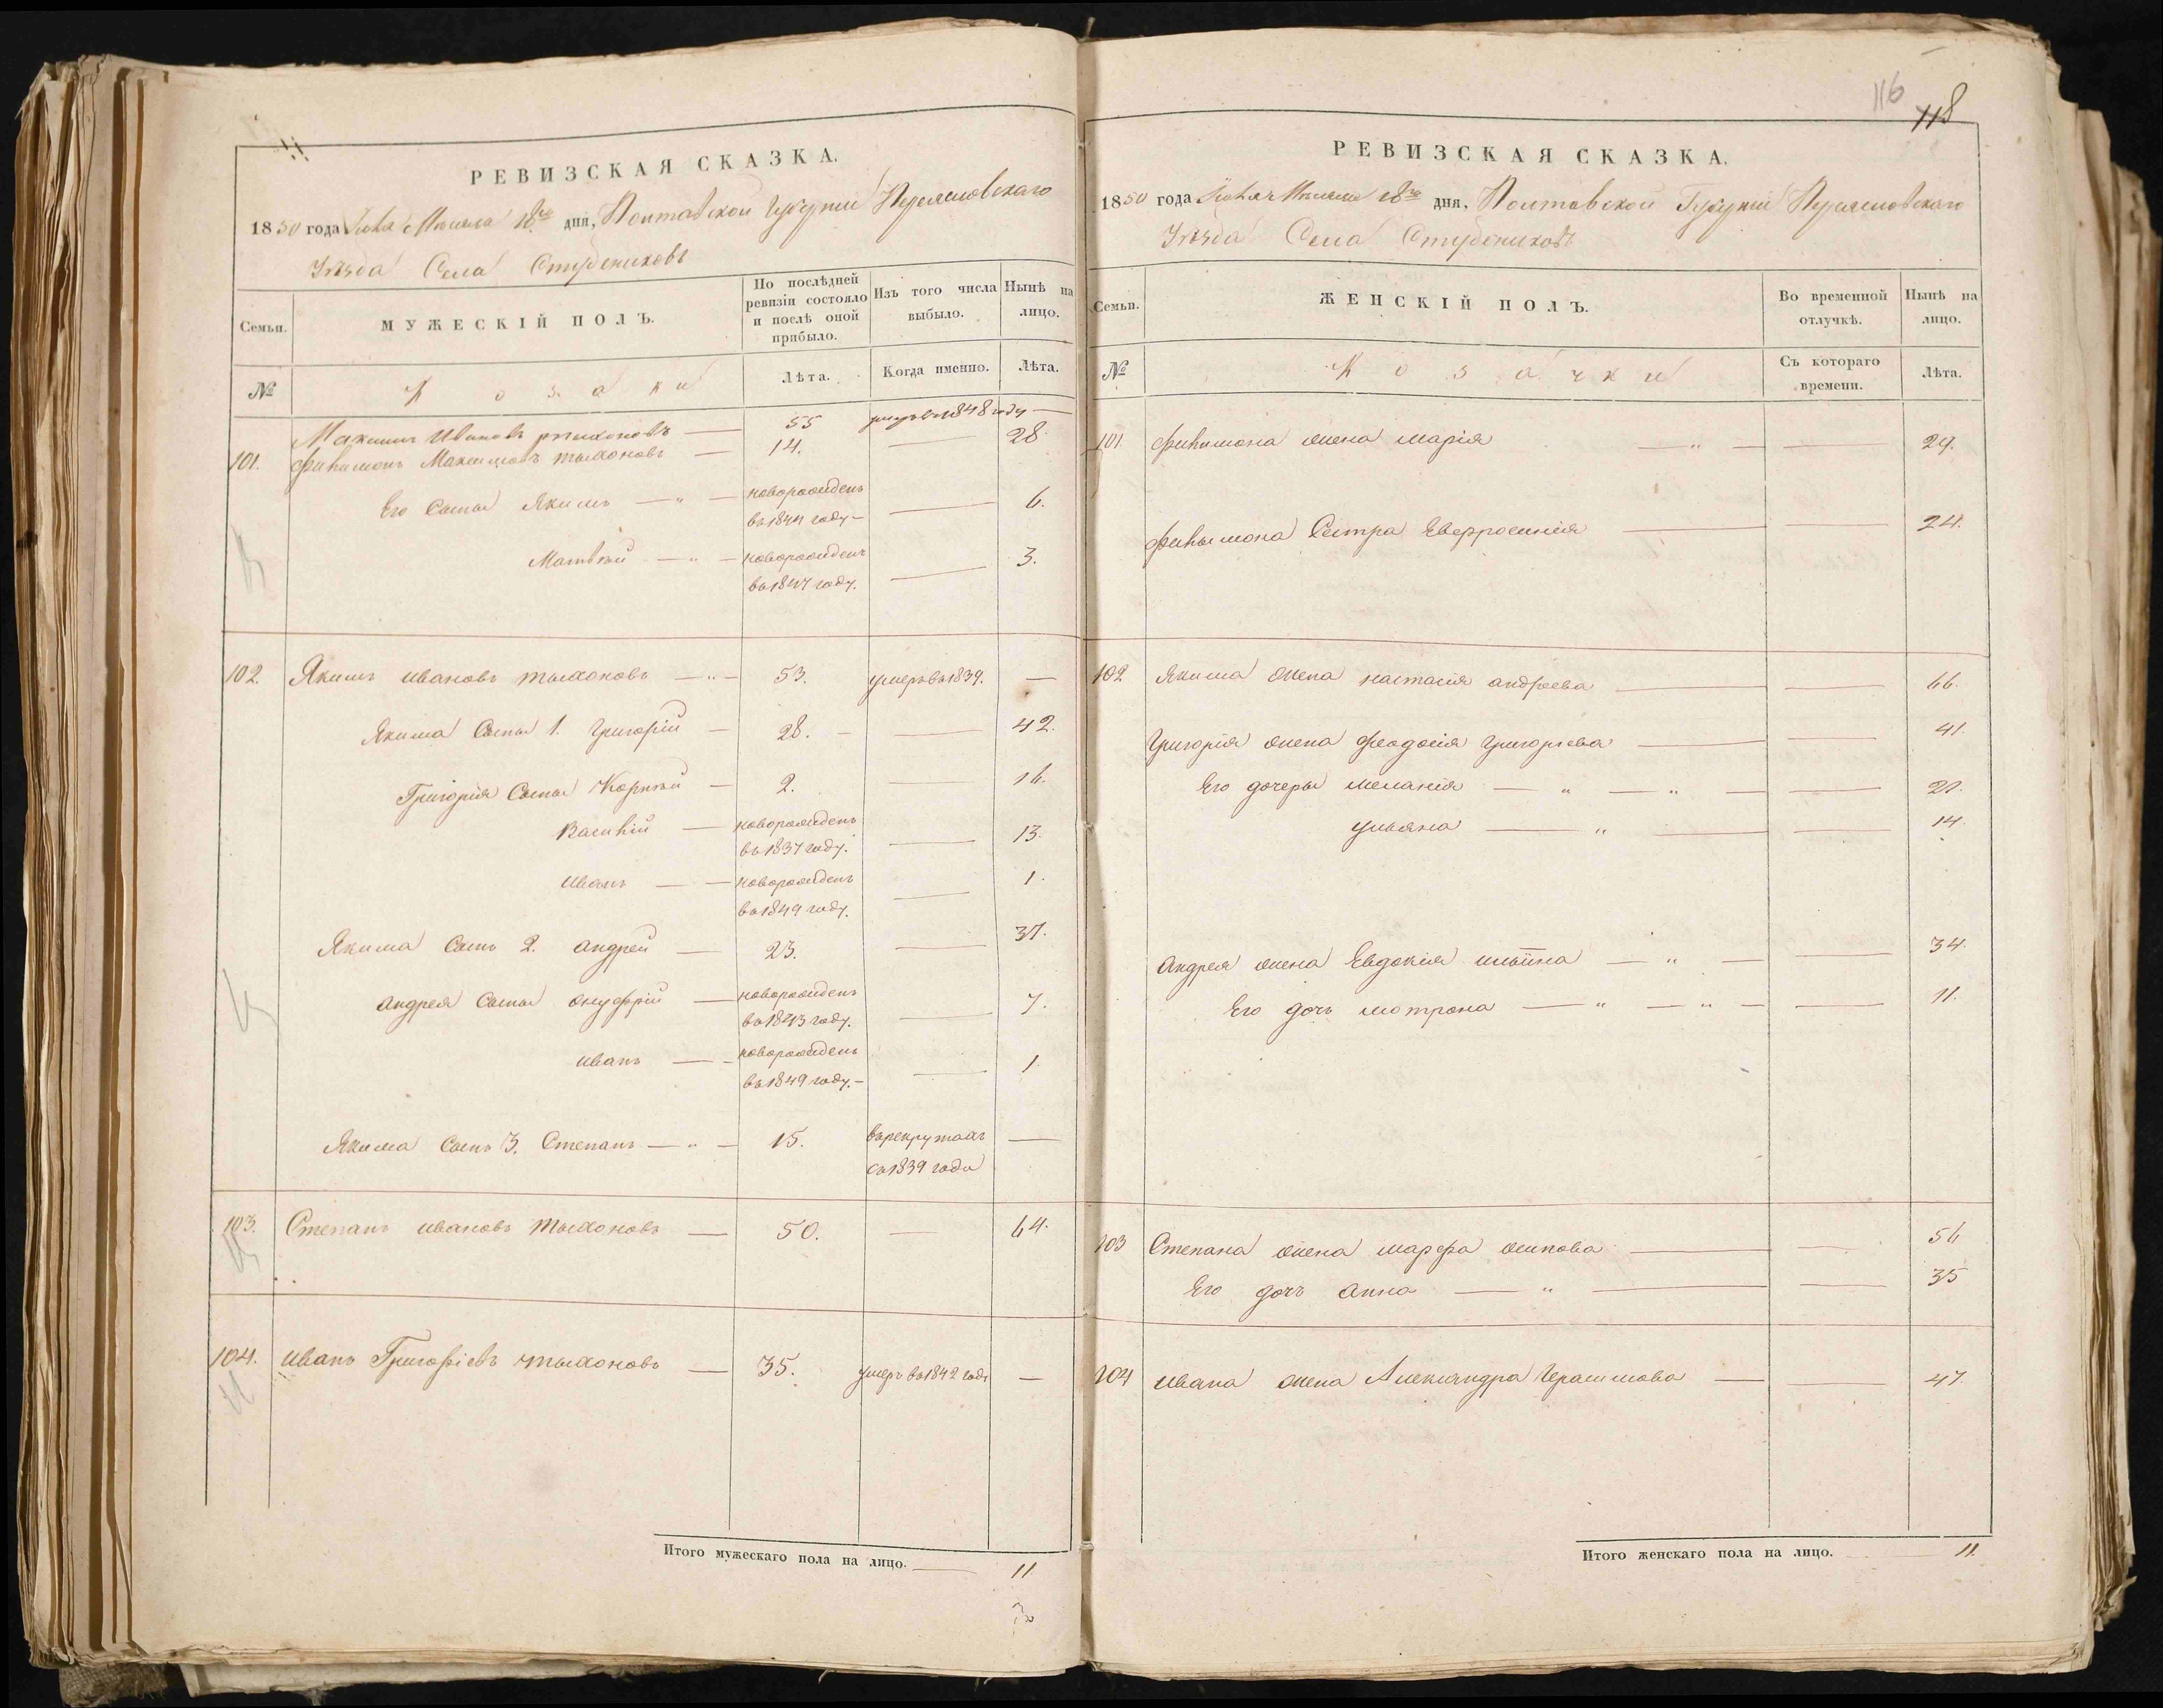 РЕВИЗСКАЯ СКАЗКА.
1850 года Июля Месяца 18го дня, Полтавской Губернии Переясловскаго
Уѣзда Села Студениковъ
Семьи.
МУЖЕСКІЙ ПОЛЪ.
По послѣдней ревизіи состояло и послѣ оной прибыло.
Изъ того числа выбыло.
Нынѣ на лицо.
№
Козаки
Лѣта.
Когда именно.
Лѣта.
Максимъ Ивановъ Тыхоновъ — 55 умеръ въ 1848 году —
101. Филимонъ Максимовъ Тыхоновъ — 14. — 28.
Его Сыны Якимъ — " — новорожденъ въ 1844 году — — 6.
Матвѣй — " — новорожденъ въ 1847 году. — 3.
102. Якимъ Ивановъ Тыхоновъ — " — 53. умеръ въ 1839. —
Якима Сыны 1. Григорій — 28. — — 42.
Григорія Сыны Корнѣй — 2. — 16.
Василій — новорожденъ въ 1837 году. — 13.
Иванъ — — новорожденъ въ 1849 году. — 1.
Якима Сынъ 2. Андрей — 23. — 37.
Андрея Сыны Онуфрій — новорожденъ въ 1843 году. — 7.
Иванъ — — новорожденъ въ 1849 году. — — 1.
Якима Сынъ 3. Степанъ — " — 15. въ рекрутахъ съ 1839 года —
103. Степанъ Ивановъ Тыхоновъ — 50. — 64.
104. Иванъ Григоріевъ Тыхоновъ — 35. умеръ въ 1842 годе —
Итого мужескаго пола на лицо. — 11
116
118
РЕВИЗСКАЯ СКАЗКА.
1850 года Июля Месяца 18го дня, Полтавской Губерніи Переясловскаго
Уѣзда Села Студениковъ
Семьи.
ЖЕНСКІЙ ПОЛЪ.
Во временной отлучкѣ.
Нынѣ на лицо.
№
Козачки
Съ котораго времени.
Лѣта.
101. Филимона жена Марія — " — — 29.
Филымона Сестра Евфросинія — — 24.
102 Якима жена Настасія Андреева — — 66.
Григорія жена Феодосія Григориева — — 41.
Его дочеры Меланія — " — " — — 21.
Ульяна — " — — 14.
Андрея жена Евдокія Ильина — " — — 34.
Его дочь Мотрона — " — " — — 11.
103 Степана жена Марфа Осипова — — 56
Его дочь Анна — " — — 35
104 Ивана жена Александра Герасимова — — 47.
Итого женскаго пола на лицо. — 11.